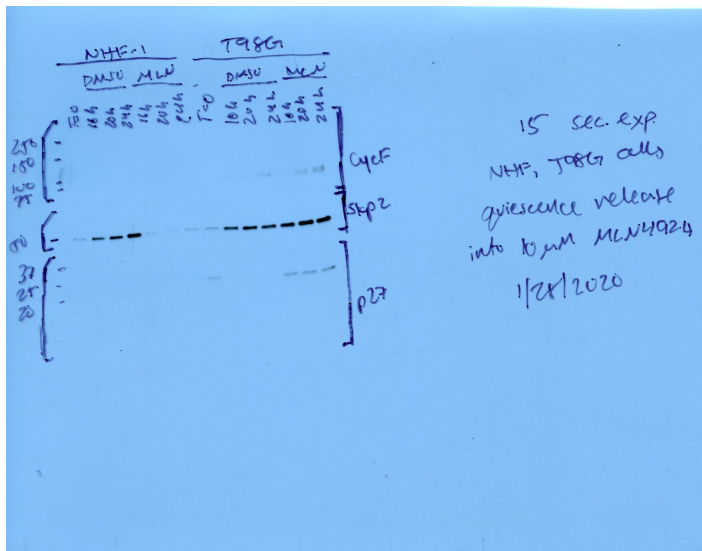 NHF-1 T98G
DMSO MLN DMSO MLN
T=0 16h 20h 24h 16h 20h 24h T=0 16h 20h 24h 16h 20h 24h
250
150
100
75
50
37
25
20
CycF
Skp2
p27
15 sec. exp.
NHF, T98G cells
quiescence release
into 10 μM MLN4924
1/28/2020